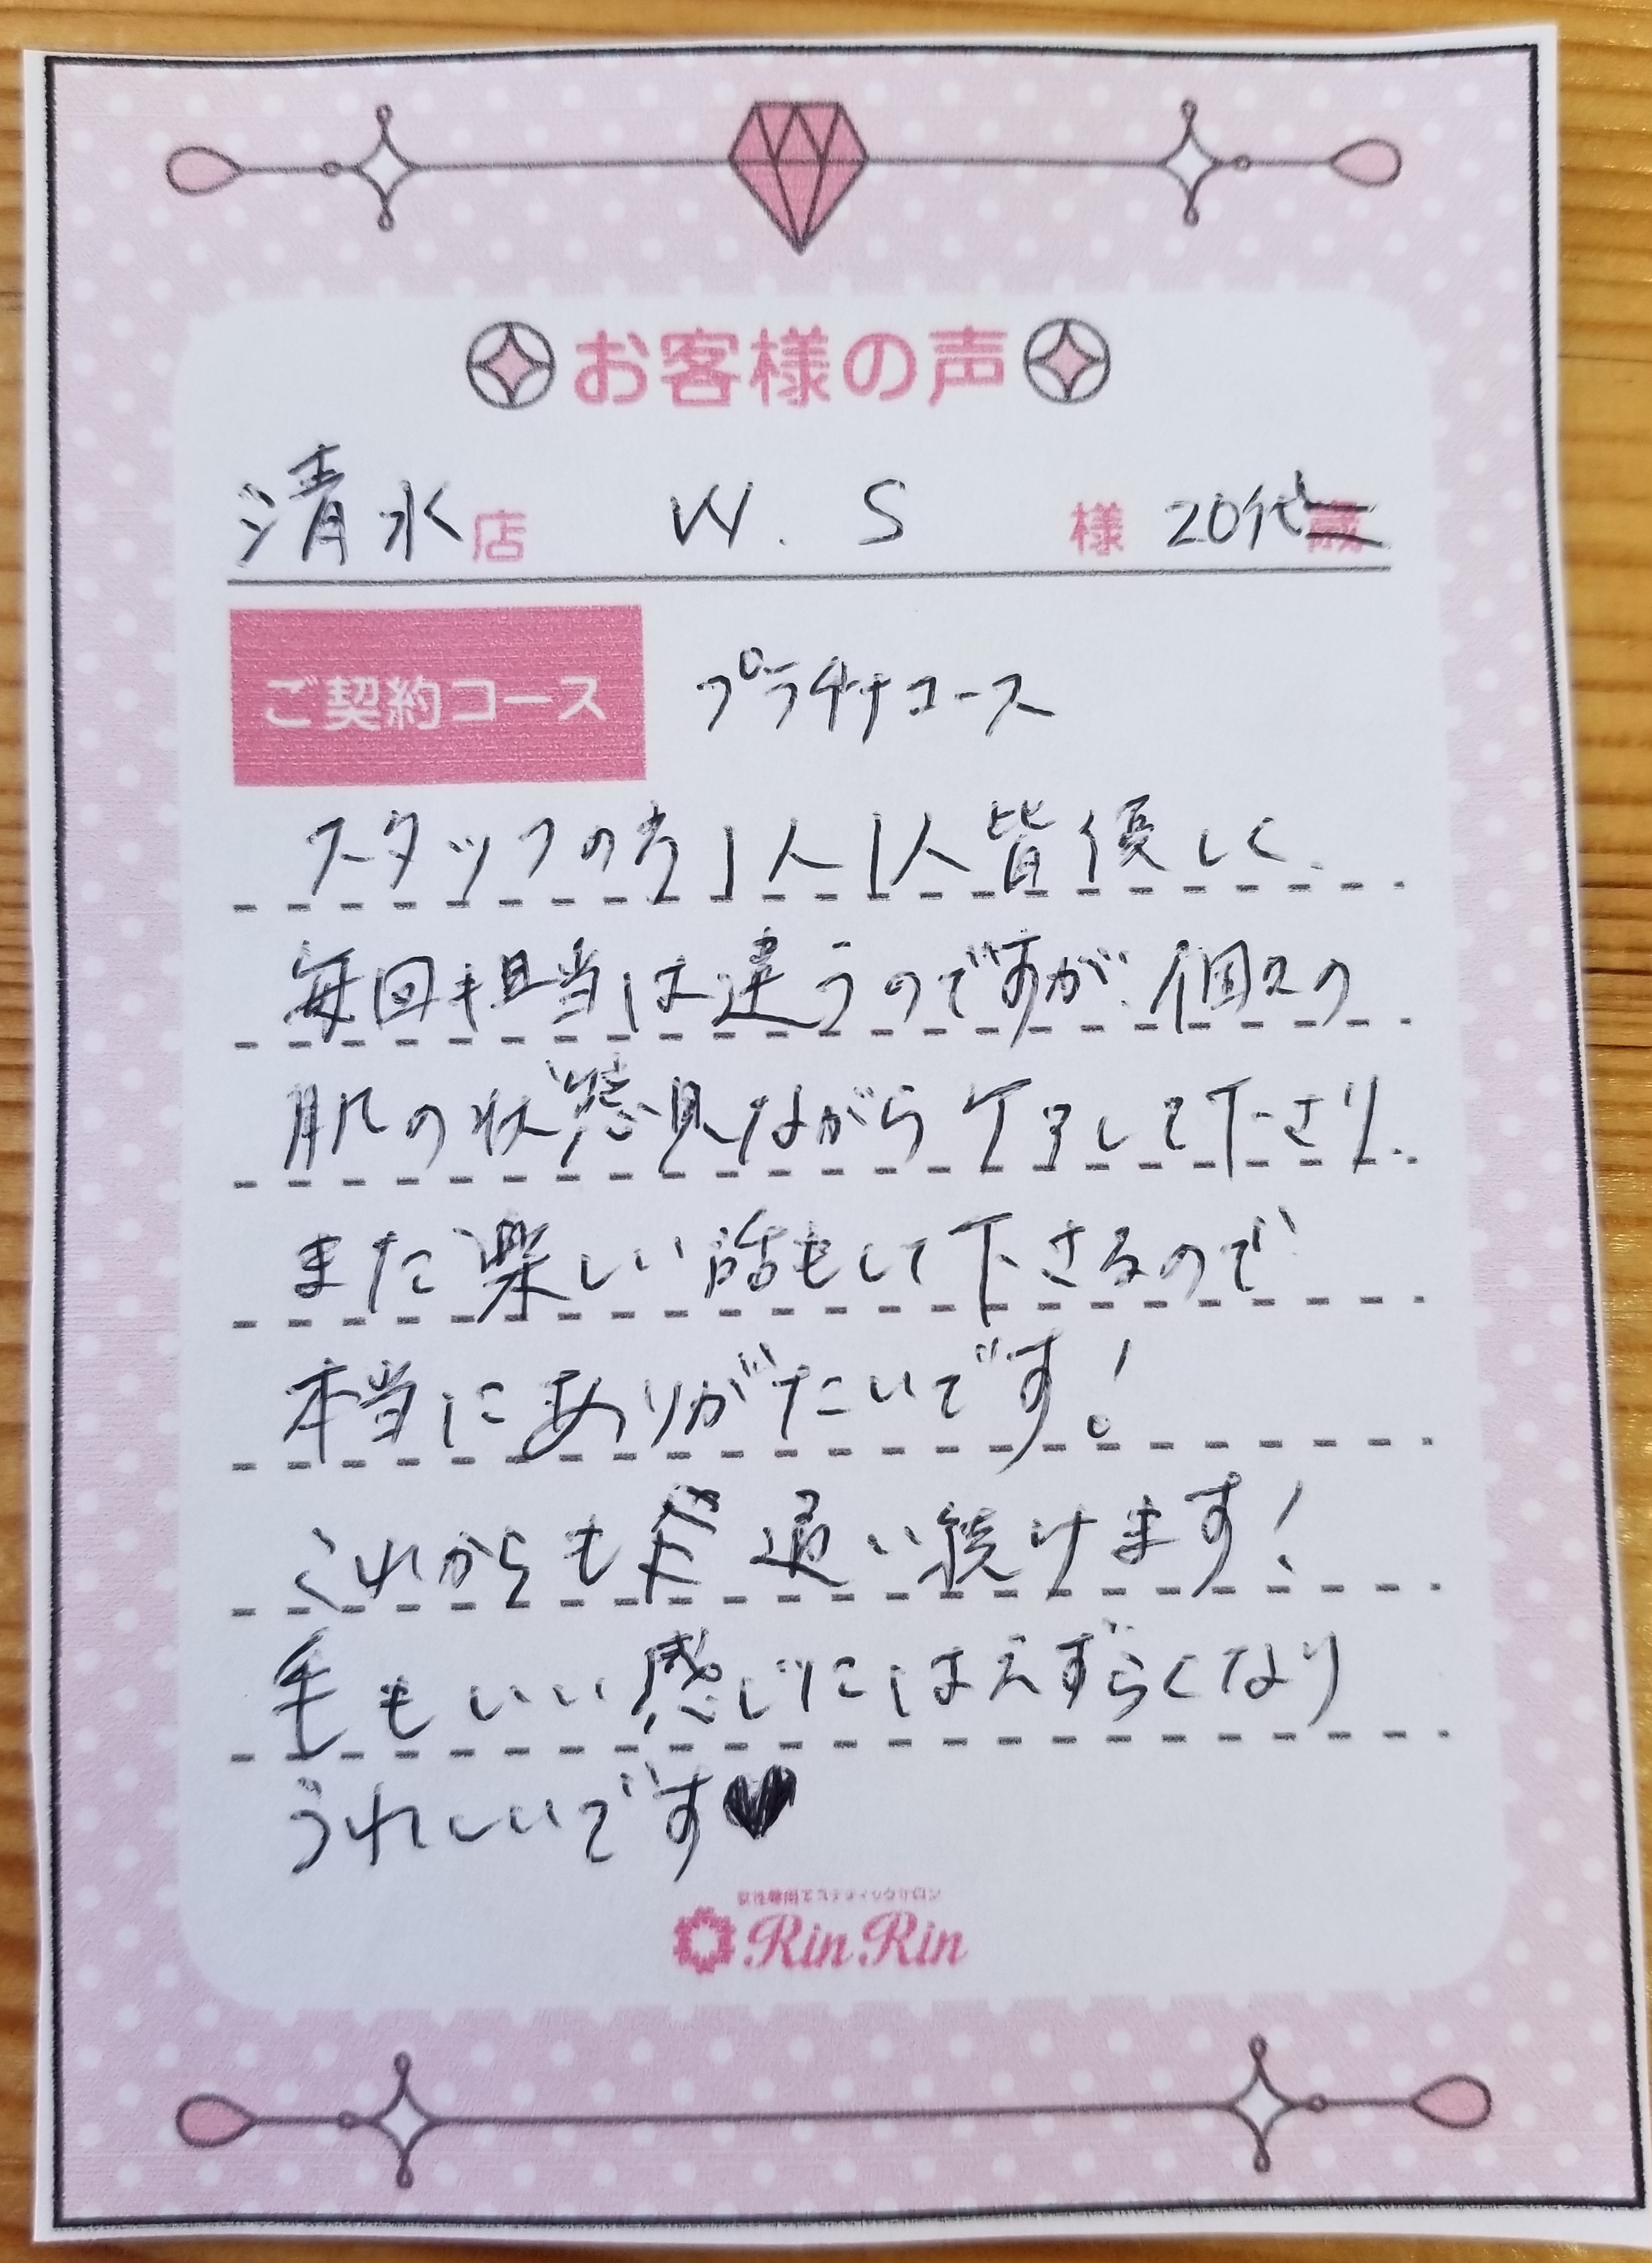 お客様の声
清水店 W. S 様 20代歳
ご契約コース プラチナコース
スタッフの方1人1人皆優しく、
毎回担当は違うのですが、個々の
肌の状態見ながらケアして下さり、
また楽しい話もして下さるので
本当にありがたいです!
これからも通い続けます!
毛もいい感じにはえずらくなり
うれしいです♥
Rin Rin